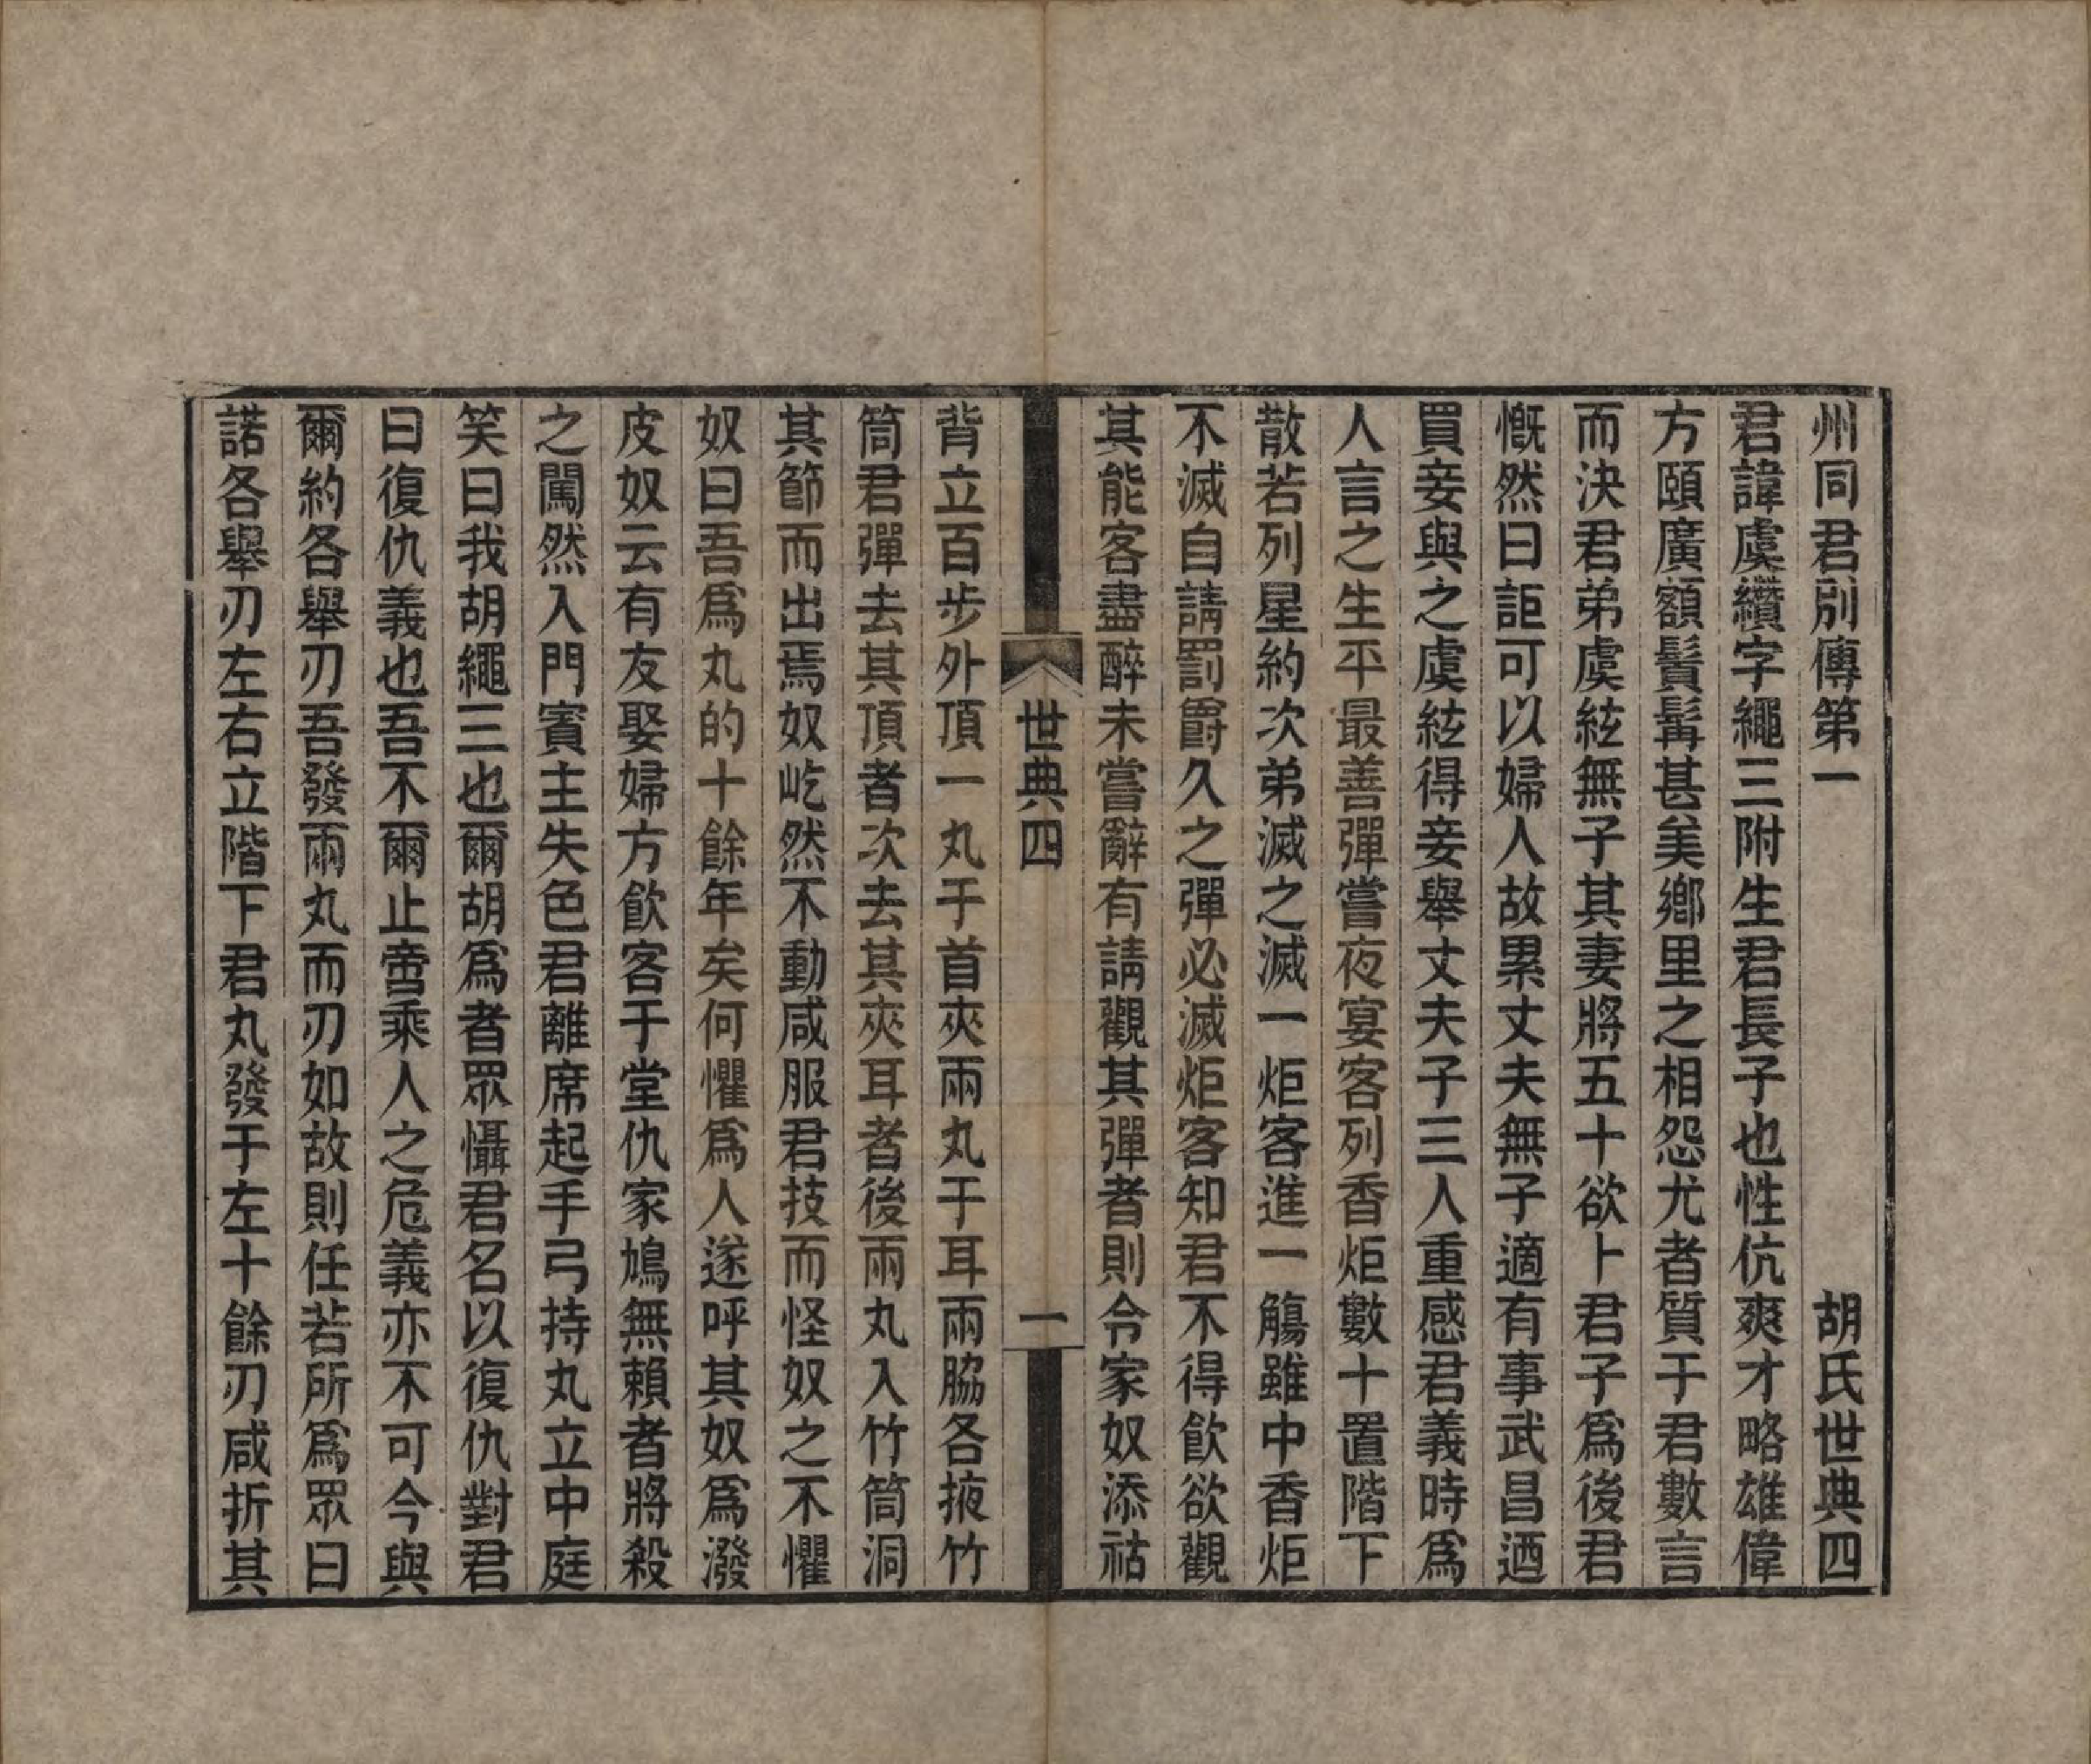 州同君別傳第一　胡氏世典四
君諱虔纘字繩三附生君長子也性伉爽才略雄偉
方頤廣額鬢髯甚美鄉里之相怨尤者質于君數言
而決君弟虔紘無子其妻將五十欲卜君子爲後君
慨然曰詎可以婦人故累丈夫無子適有事武昌迺
買妾與之虔紘得妾舉丈夫子三人重感君義時爲
人言之生平最善彈嘗夜宴客列香炬數十置階下
散若列星約次弟滅之滅一炬客進一觴雖中香炬
不滅自請罰爵久之彈必滅炬客知君不得飲欲觀
其能客盡醉未嘗辭有請觀其彈者則令家奴添祜
世典四　一
背立百步外頂一丸于首夾兩丸于耳兩脇各掖竹
筒君彈去其頂者次去其夾耳者後兩丸入竹筒洞
其節而出焉奴屹然不動咸服君技而怪奴之不懼
奴曰吾爲丸的十餘年矣何懼爲人遂呼其奴爲潑
皮奴云有友娶婦方飲客于堂仇家鳩無賴者將殺
之闖然入門賓主失色君離席起手弓持丸立中庭
笑曰我胡繩三也爾胡爲者眾懾君名以復仇對君
曰復仇義也吾不爾止啻乘人之危義亦不可今與
爾約各舉刃吾發兩丸而刃如故則任若所爲眾曰
諾各舉刃左右立階下君丸發于左十餘刃咸折其